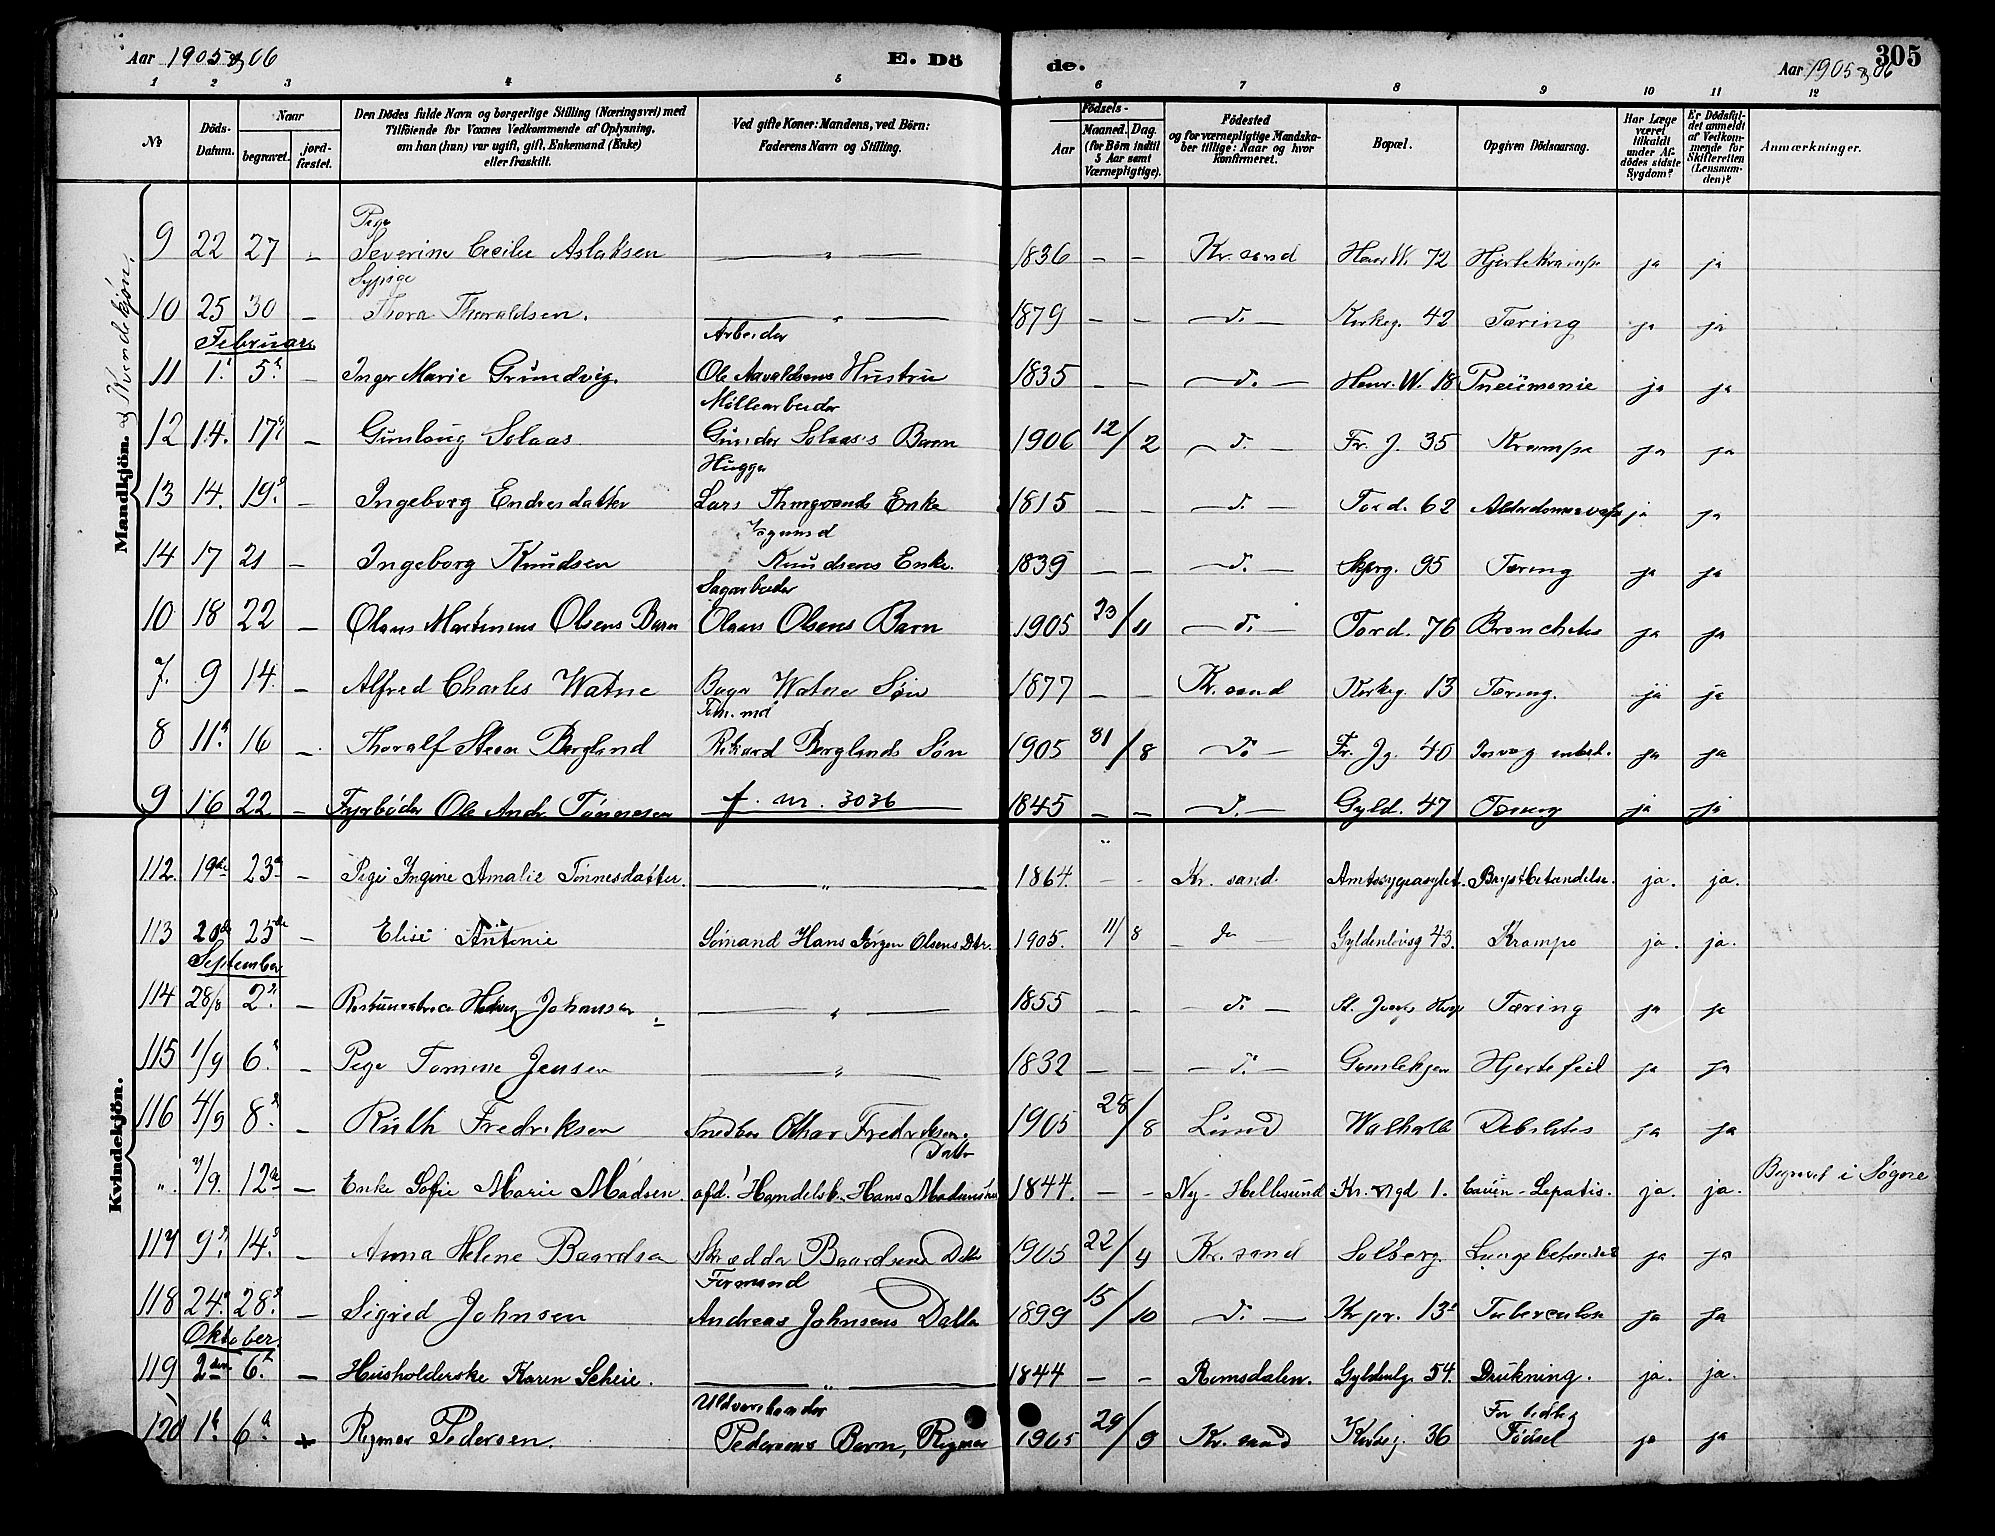 Aar 1905 & 06
E. Dö
de.
Aar 1905 & 06
305
1 2 3 4 5 6 7 8 9 10 11 12
No
Döds-Datum.
Naar
begravet.
jord-fæstet.
Den Dödes fulde Navn og borgerlige Stilling (Næringsvei) med
Tilföiende for Voxnes Vedkommende af Oplysning,
om han (hun) var ugift, gift, Enkemand (Enke)
eller fraskilt.
Ved gifte Koner: Mandens, ved Börn:
Faderens Navn og Stilling.
Födsels-
Aar
Maaned. Dag.
(for Börn indtil
5 Aar samt
Værnepligtige).
Födested
og for værnepligtige Mandska-
ber tillige: Naar og hvor
konfirmeret.
Bopæl.
Opgiven Dödsaarsag.
Har Læge
været
tilkaldt
under Af-
dödes sidste
Sygdom?
Er Dödsfal-
det anmeldt
af Vedkom-
mende for
Skifteretten
(Lensman-
den)?
Anmærkninger.
Mandkjön. & Kvendekjøn.
Pige
9 22 27 - Severine Cecilie Aslaksen — " — 1836 - - Kr.sand Henr W. 72 Hjertekrampe ja ja
Sypige
10 25 30 - Thora Thoraldsen. — " — 1879 - - - d. - Kirkeg. 42 Tæring ja ja
Februar Arbeider
11 1. 5. - Inger Marie Grundvig. Ole Aavaldsens Hustru 1835 - - - d. - Henr. W. 18 Pneümonie ja ja
Møllearbeider
12 14. 17. - Gunlaug Solaas Gunder Solaas's Barn 1906 12/2 - d. - Fr. J. 35 Krampe ja ja
Hugger
13 14. 19. - Ingeborg Endresdatter Lars Enke 1815 - - - d. - Tord. 62 ja ja
14 17 21 - Ingeborg Knudsen Knudsens Enke. 1839 - - - d. - 95 Tæring ja ja
Sagarbeider
10 18 22 - Olaus Martinius Olsens Barn Olaus Olsens Barn 1905 23/11 - d. - Tord. 76 Bronchitis ja ja
7. 9 14. - Alfred Charles Watne Watne Søn 1877 - - Kr.sand Kirkeg. 13 Tæring. ja ja
Tøm.md
8 11. 16 - Thoralf Steen Berglund Rikard Berglunds Søn 1905 31/8 - do - Fr. Jg. 40 ja ja
9 16 22 - Fyrbøder Ole Andr. Tønnesen f. nr. 3036 1845 - - - d. - Gyld. 47 Tæring ja ja
Kvindekjön.
112. 19de 23. - Pige Ingine Amalie Tønnesdatter. — " — 1864. - - Kr.sand. Amtssygeasylet. Brystbetændelse. ja. ja.
113 20de 25de - Elise Antonie Sømand Hans Jørgen Olsens Dtr. 1905. 11/8 - do - Gyldenløvsg 43. Krampe ja. ja.
September
114 28/8 2. - Johansen — " — 1855 - - - d. - St. Josefs Hosp Tæring ja ja
115 1/9 6. - Pige Tomine Jensen — " — 1832 - - - d. - Gamlehjem Hjertefeil ja ja
116 4/9 8. - Ruth Fredriksen Othar Fredriksens Datter 1905 28/8 Lund Walhalla Debilitas ja ja
". 7/9. 12te - Enke Sofie Marie Madsen afd. Handelsb. Hans Madsens 1844. - - Ny-Hellesund Kr. vgd 1. ja. ja. Begravet i Søgne
117 9. 14. - Anna Helene Baardsen Skrædder Baardsens Datter 1905 22/4 Kr.sand Solberg. Lungebetændelse ja ja
Formand
118 24. 28. - Sigrid Johnsen Andreas Johnsens Datter 1899 15/10 - d. - Kr pr. 13 Tuberculose ja ja
Oktober
119 2den 6. - Husholderske Karen Scheie. — " — 1844 - - Romsdalen. Gyldenlg. 54. Drukning. ja. ja.
120 1. 6. Rigmor Pedersen. Pedersens Barn, Rigmor 1905 29/9 Kr.sand Kirkeg. 36 For tidlig Födsel ja ja